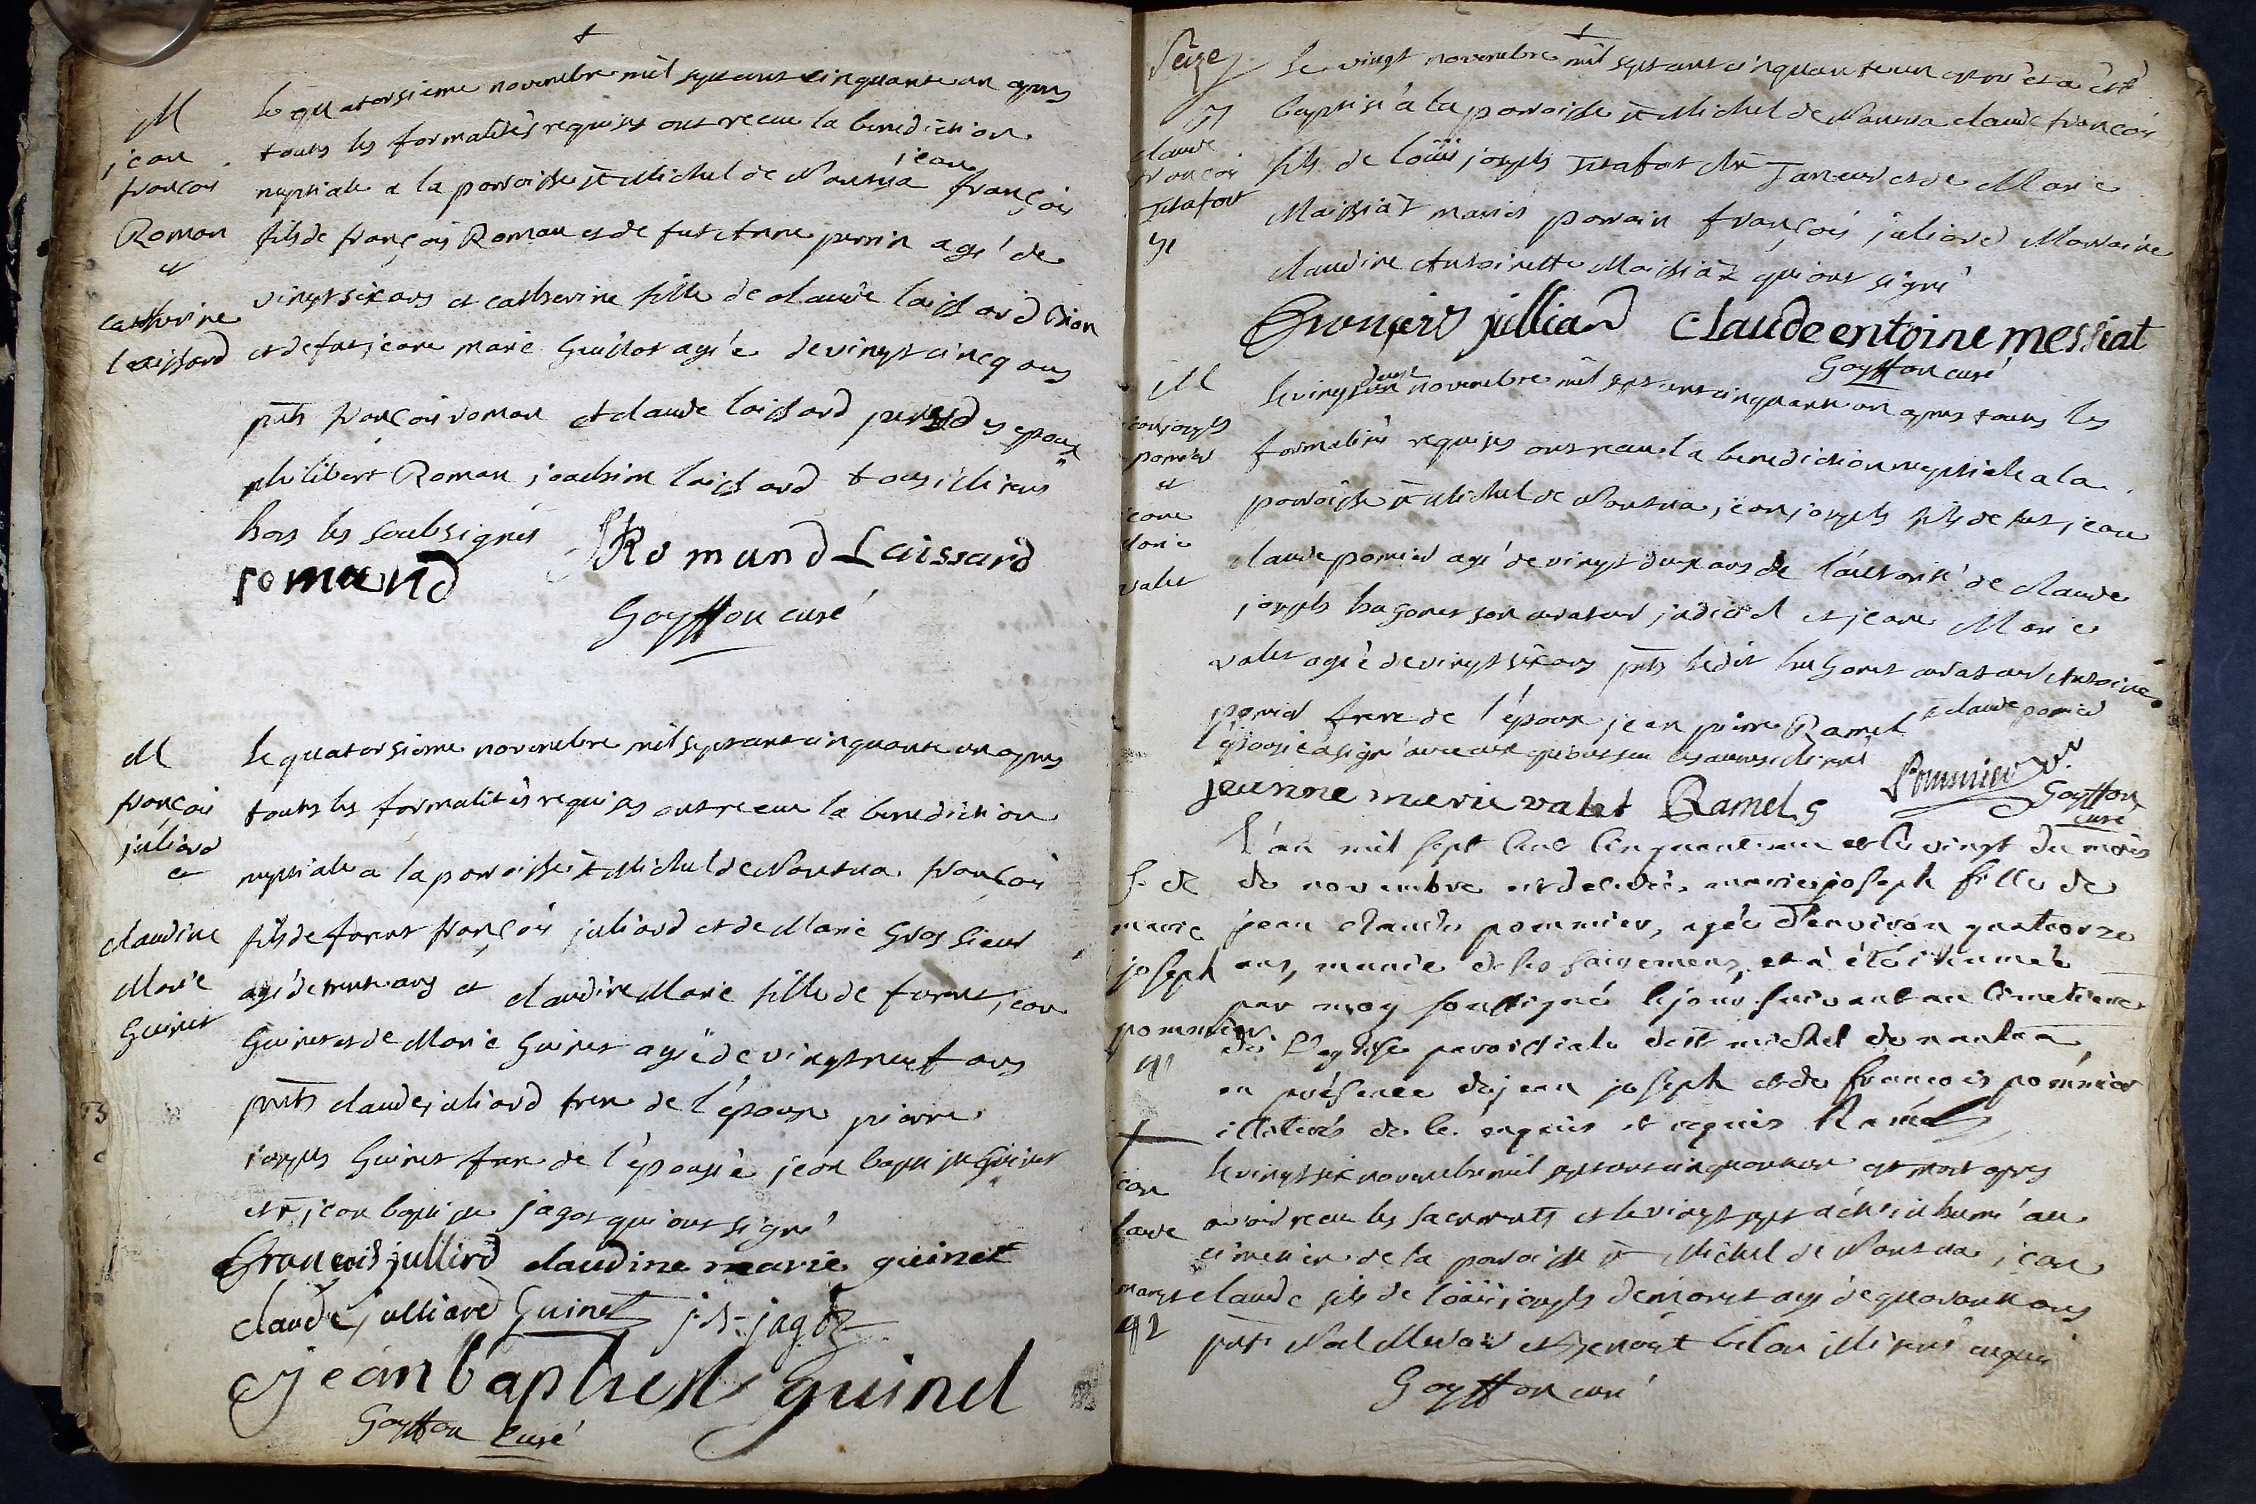 M
jean
francois
Roman
et
catherine
laissard
le quatorsieme novembre mil sept cent cinquante un apres
toutes les formalités requises ont receu la benediction
jean
nuptiale a la parroisse st Michel de Nantua françois
fils de françois Roman et de fut Anne perrin agé de
vingt six ans et catherine fille de claude laissard
et de fut jeane marie Guillot agée de vingt cincq ans
pnts françois roman et claude laissard peres des epoux
philibert Roman joachim laissard tous illiterés
hors les soubsignés
romand Romand Laissard
Goyffon curé
M
françois
juliard
et
claudine
Marie
Guinet
le quatorsieme novembre mil sept cent cinquante un apres
toutes les formalités requises ont receu la benediction
nuptiale a la parroisse st Michel de Nantua françois
fils de françois juliard et de Marie
agé de trente ans et claudine Marie fille de jean
Guinet et de Marie Guinet agée de vingt neuf ans
pnts claude juliard frere de l'epoux pierre
joseph Guinet frere de l'épouse jean baptiste Guinet
et jean baptiste jagot qui ont signé
francois julliard claudine marie guinet
claude julliard Guinet j-b-jagot
jean baptiste guinet
Goyffon curé
Seize
claude
françois
le vingt novembre mil sept cent cinquante un est né et a été
baptisé à la parroisse st Michel de Nantua claude françois
fils de loüis joseph Taneur et de Marie
Maissiaz mariés parrain françois juliard Marraine
claudine Antoinette Maissiaz qui ont signé
François julliard claude entoine messiat
Goyffon curé
M
jean joseph
pomier
et
jeane
Marie
valet
deux
le vingt novembre mil sept cent cinquante un apres toutes les
formalités requises ont receu la benediction nuptiale a la
parroisse st Michel de Nantua jean joseph fils de fut jean
claude pomier agé de vingt deux ans de l'autorité de claude
joseph hugonet son curateur judiciel et jeane Marie
valet agée de vingt six ans pnts ledit hugonet curateur Antoine
pomier frere de l'époux jean pierre Ramel et claude pomier
l'épouse a signé avec illiterés
jeanne marie valet Ramel Pommier
Goyffon
curé
S. de
marie
joseph
pommier
l'an mil sept cent cinquante un et le vingt du mois
de novembre est decedée marie joseph fille de
jean claude pommier, agée d'environ quatorze
ans, munie de ses sacremens, et a été inhumée
par moy soussigné le jour suivant au cimetiere
de l'eglise paroissiale de st michel de nantua
en présence de jean joseph et de francois pommier
illiterés de ce enquis et requis Ramel
jean
claude
le vingt six novembre mil sept cent cinquante un est mort apres
avoir receu les sacrements et le vingt sept a été inhumé au
cimetiere de la parroisse st Michel de Nantua jean
claude fils de loüis joseph agé de quarante ans
pnts et benoit illiterés enquis
Goyffon curé